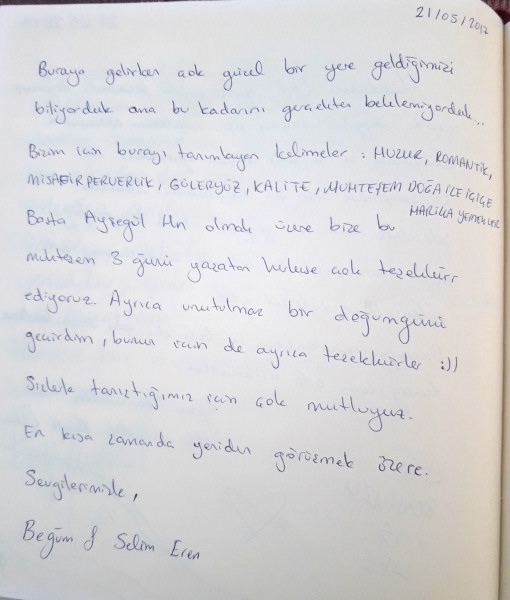 21/05/2017
Buraya gelirken çok güzel bir yere geldiğimizi
biliyorduk ama bu kadarını gerçekten beklemiyorduk...
Bizim için burayı tanımlayan kelimeler : HUZUR, ROMANTİK,
MİSAFİRPERVERLİK, GÜLERYÜZ, KALİTE, MUHTEŞEM DOĞA İLE İÇİÇE
HARİKA YEMEKLER
Başta Ayşegül Hn olmak üzere bize bu
muhteşem 3 günü yaşatan herkese çok teşekkür
ediyoruz. Ayrıca unutulmaz bir doğumgünü
geçirdim, bunun için de ayrıca teşekkürler :))
Sizlerle tanıştığımız için çok mutluyuz.
En kısa zamanda yeniden görüşmek üzere.
Sevgilerimizle,
Begüm & Selim Eren